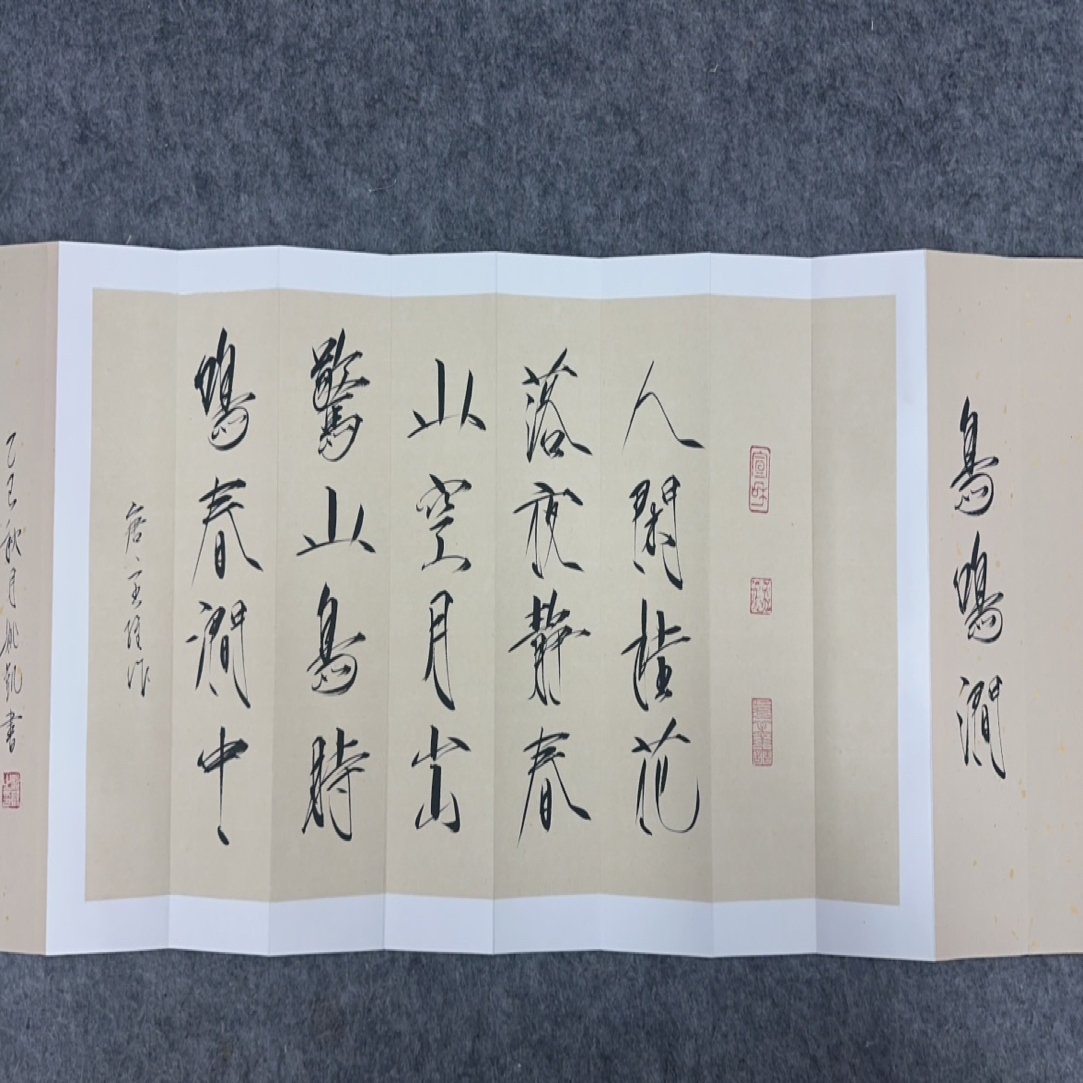 鳥鳴澗
人閒桂花
落夜靜春
山空月出
驚山鳥時
鳴春澗中
唐王維作
乙巳秋月姚凱書